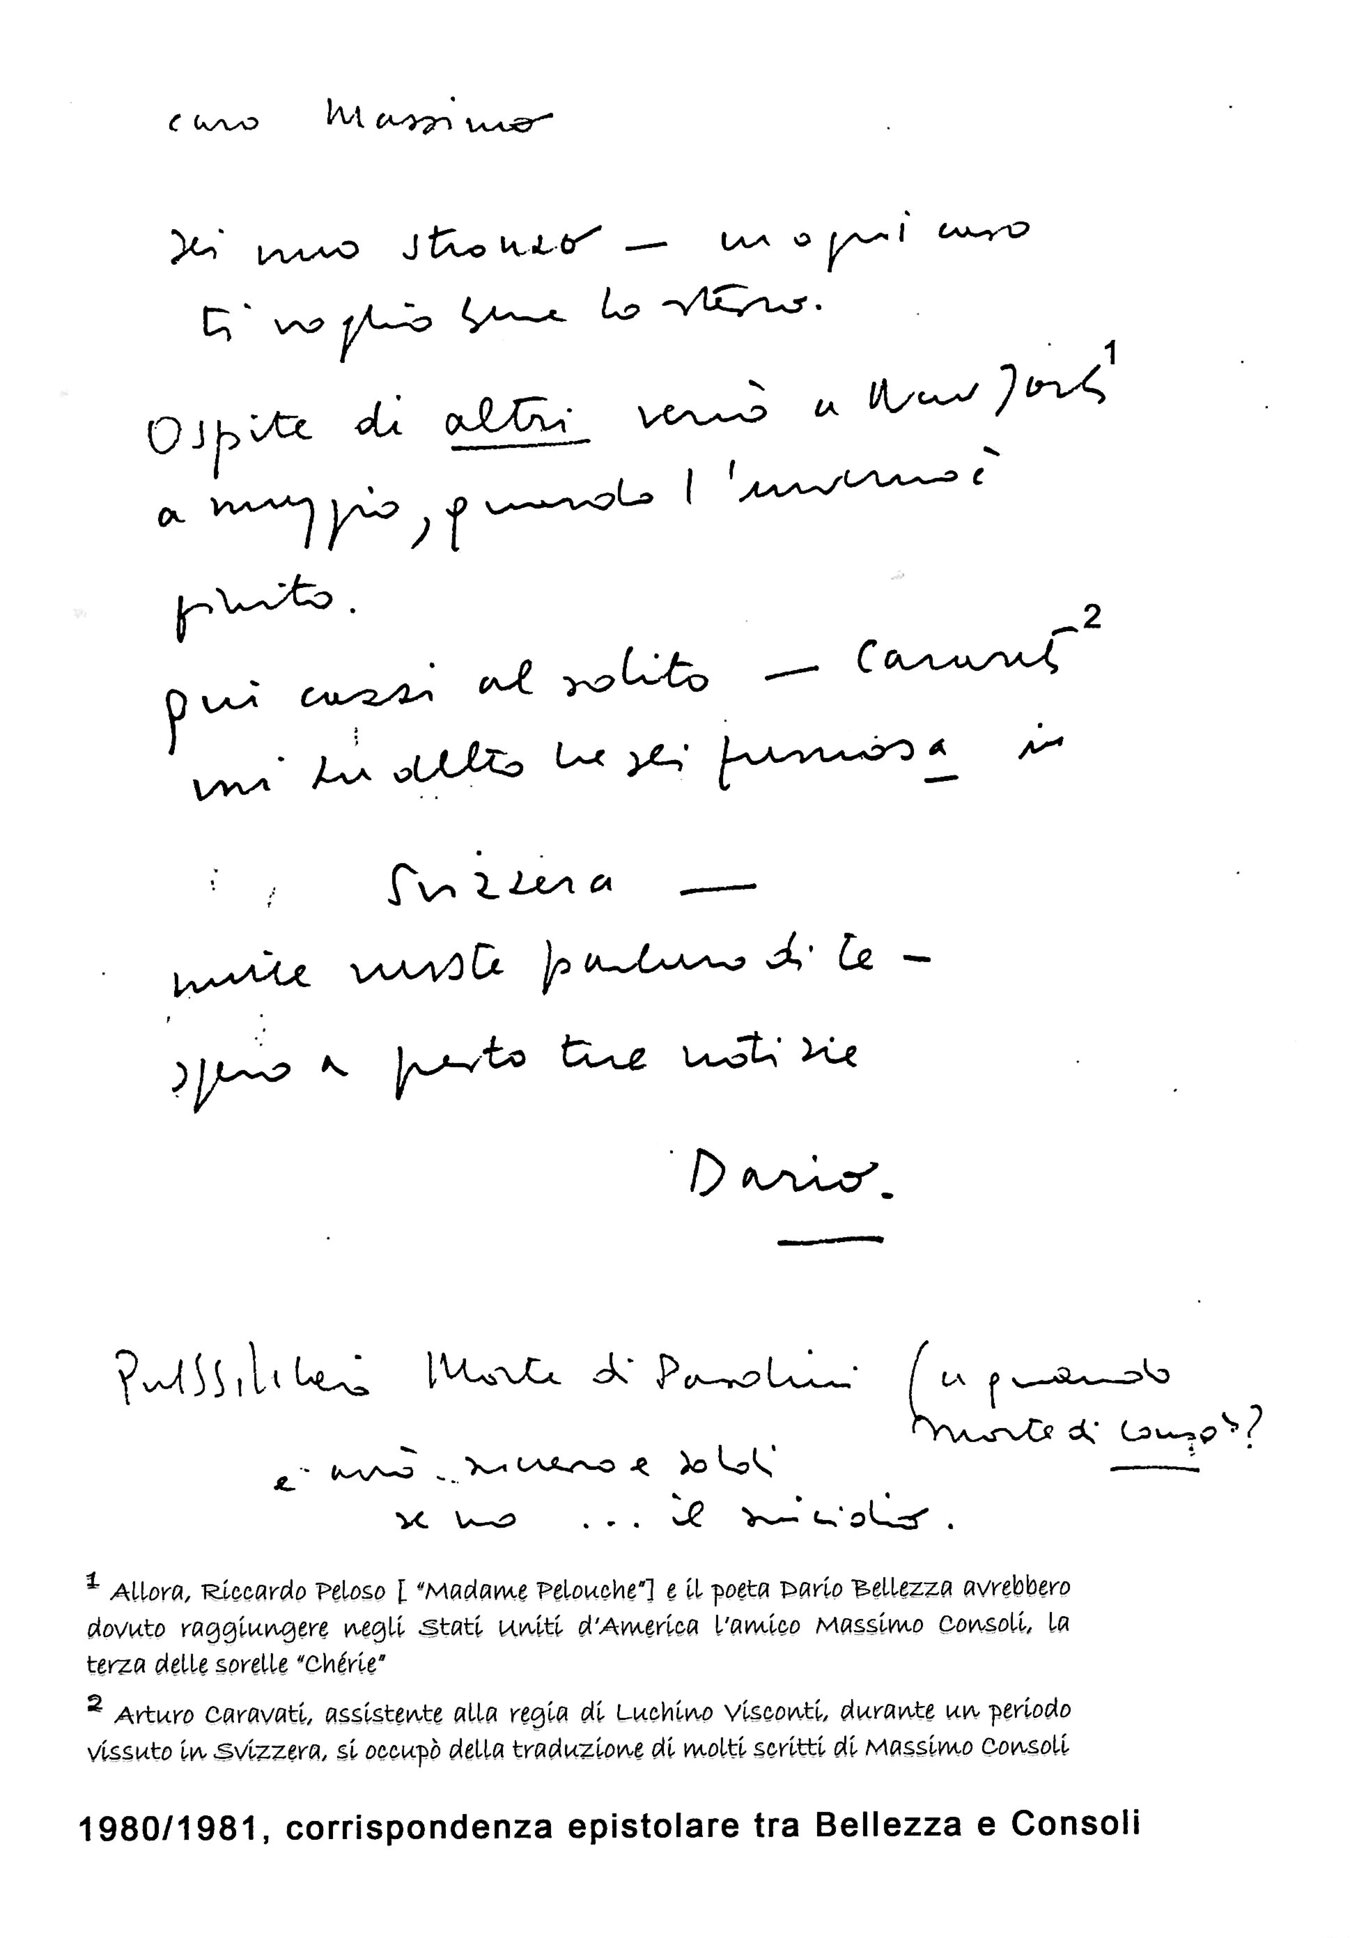 caro Massimo
sei uno stronzo — in ogni caso
ti voglio bene lo stesso.
Ospite di altri verrò a New York¹
a maggio, quando l'inverno è
finito.
qui cazzi al solito —
mi ha detto che sei famosa in
Svizzera —
riviste parlano di te –
spero a presto tue notizie
Dario.
Pubblicherò Morte di Pasolini (a quando
morte di Consoli?
e avrò successo e soldi
se no ... il suicidio.
¹ Allora, Riccardo Peloso [ "Madame Pelouche"] e il poeta Dario Bellezza avrebbero
dovuto raggiungere negli Stati Uniti d'America l'amico Massimo Consoli, la
terza delle sorelle "Chérie"
² Arturo Caravati, assistente alla regia di Luchino Visconti, durante un periodo
vissuto in Svizzera, si occupò della traduzione di molti scritti di Massimo Consoli
1980/1981, corrispondenza epistolare tra Bellezza e Consoli